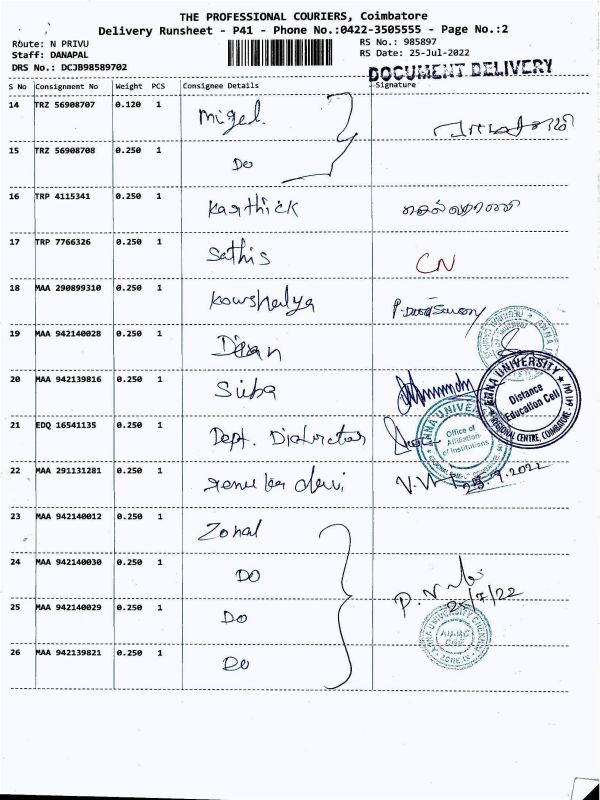 THE PROFESSIONAL COURIERS, Coimbatore
Delivery Runsheet - P41 - Phone No.:0422-3505555 - Page No.:2
Route: N PRIVU RS No.: 985897
Staff: DANAPAL RS Date: 25-Jul-2022
DRS No.: DCJB98589702
DOCUMENT DELIVERY
S No Consignment No Weight PCS Consignee Details Signature
14 TRZ 56908707 0.120 1 Miged
15 TRZ 56908708 0.250 1 Do
16 TRP 4115341 0.250 1 Karthick
17 TRP 7766326 0.250 1 Sathis CN
18 MAA 290899310 0.250 1 Kowshalya
19 MAA 942140028 0.250 1 Dean
20 MAA 942139816 0.250 1 Suba
ANNA UNIVERSITY
Distance
Education Cell
REGIONAL CENTRE, COIMBATORE - 641 047
21 EDQ 16541135 0.250 1 Dept.
ANNA UNIVERSITY
Office of
Affiliation
of Institutions
22 MAA 291131281 0.250 1 renuka devi
23 MAA 942140012 0.250 1 Zonal
24 MAA 942140030 0.250 1 DO
25/7/22
25 MAA 942140029 0.250 1 Do
26 MAA 942139821 0.250 1 Do